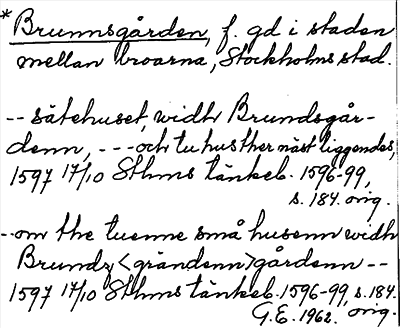 * Brunnsgården, f. gd i staden
mellan broarna, Stockholms stad.
-- sätehuset, widh Brundsgår-
denn, --- och tu hus ther näst liggendes,
1597 17/10 Sthms tänkeb. 1596-99,
s. 184. orig.
-- om the tuenne små husenn widh
Brundz <grändenn> gårdenn --
1597 17/10 Sthms tänkeb. 1596-99, s. 184.
G.E. 1962. orig.